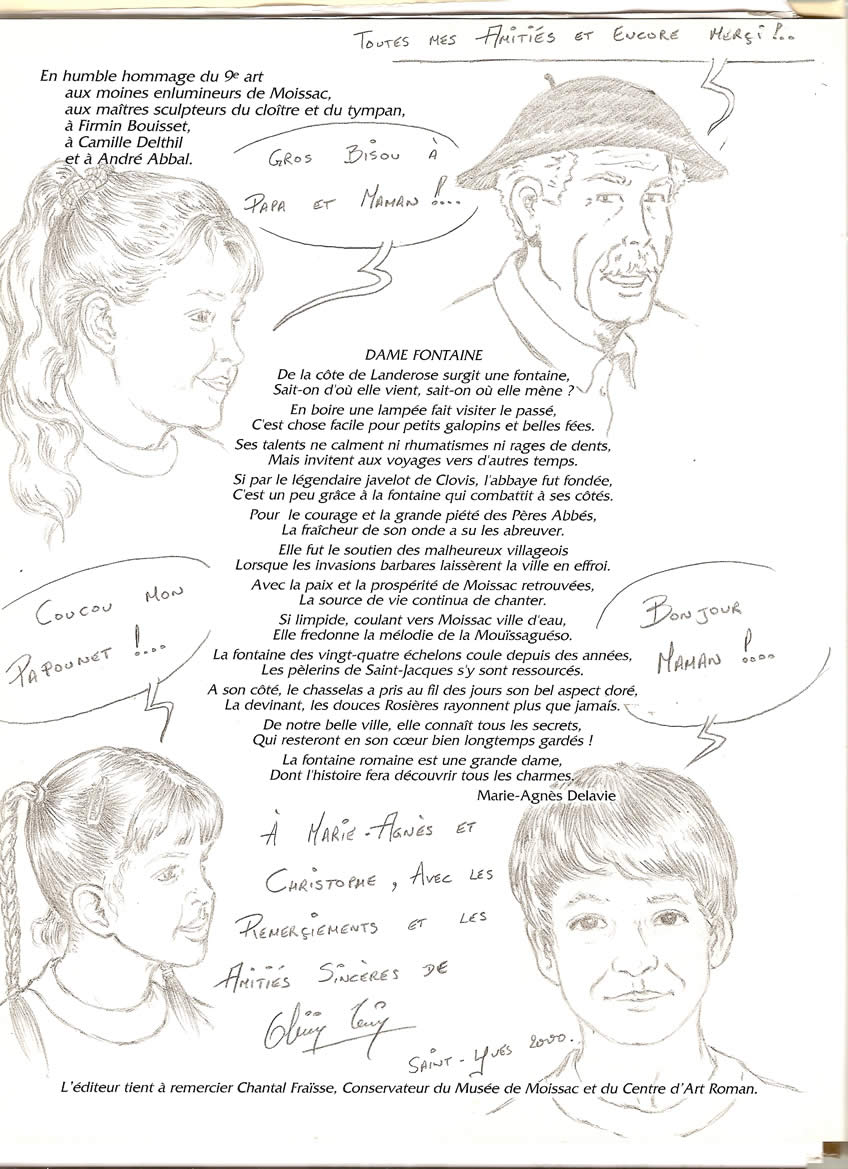 TOUTES MES AMITIÉS ET ENCORE MERÇI !...
En humble hommage du 9e art
aux moines enlumineurs de Moissac,
aux maîtres sculpteurs du cloître et du tympan,
à Firmin Bouisset,
à Camille Delthil
et à André Abbal.
GROS BISOU À
PAPA ET MAMAN !...
DAME FONTAINE
De la côte de Landerose surgit une fontaine,
Sait-on d'où elle vient, sait-on où elle mène ?
En boire une lampée fait visiter le passé,
C'est chose facile pour petits galopins et belles fées.
Ses talents ne calment ni rhumatismes ni rages de dents,
Mais invitent aux voyages vers d'autres temps.
Si par le légendaire javelot de Clovis, l'abbaye fut fondée,
C'est un peu grâce à la fontaine qui combattit à ses côtés.
Pour le courage et la grande piété des Pères Abbés,
La fraîcheur de son onde a su les abreuver.
Elle fut le soutien des malheureux villageois
Lorsque les invasions barbares laissèrent la ville en effroi.
Avec la paix et la prospérité de Moissac retrouvées,
La source de vie continua de chanter.
Si limpide, coulant vers Moissac ville d'eau,
Elle fredonne la mélodie de la Mouïssaguéso.
La fontaine des vingt-quatre échelons coule depuis des années,
Les pèlerins de Saint-Jacques s'y sont ressourcés.
A son côté, le chasselas a pris au fil des jours son bel aspect doré,
La devinant, les douces Rosières rayonnent plus que jamais.
De notre belle ville, elle connaît tous les secrets,
Qui resteront en son cœur bien longtemps gardés !
La fontaine romaine est une grande dame,
Dont l'histoire fera découvrir tous les charmes.
Marie-Agnès Delavie
COUCOU MON
PAPOUNET !....
BONJOUR
MAMAN !....
À MARIE-AGNÈS ET
CHRISTOPHE, AVEC LES
REMERÇIEMENTS ET LES
AMITIÉS SINCÈRES DE
SAINT-YVES 2000.
L'éditeur tient à remercier Chantal Fraïsse, Conservateur du Musée de Moissac et du Centre d'Art Roman.